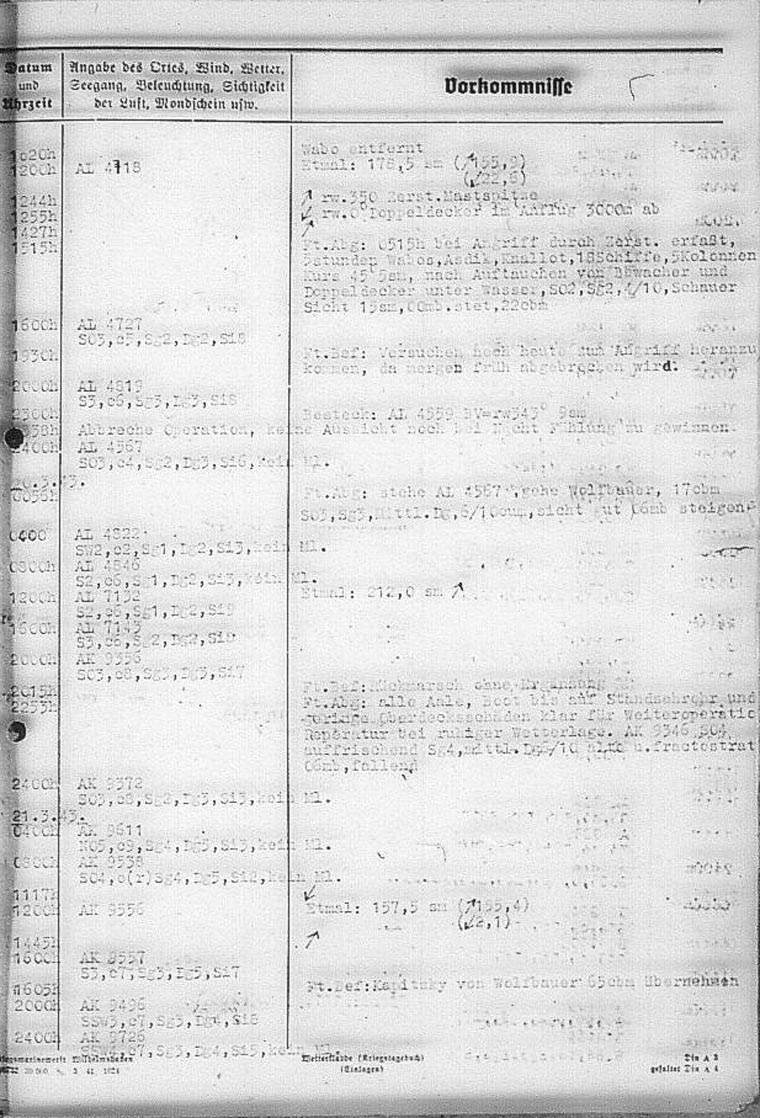 Datum
und
Uhrzeit
Angabe des Ortes, Wind, Wetter,
Seegang, Beleuchtung, Sichtigkeit
der Luft, Mondschein usw.
Vorkommnisse
Wabo entfernt
1200h AL 4718 Etmal: 178,5 sm (↗155,9)
(↙22,6)
1244h ↗ rw.350 Zerst.Mastspitze
1255h ↙ rw.0° Doppeldecker im Anflug 3000m ab
1427h ↗
1515h Ft.Abg: 0515h bei Angriff durch Zerst. erfaßt,
5stunden Wabos,Asdik,Knallot,18Schiffe,5Kolonnen
Kurs 45 5sm, nach Auftauchen von Bewacher und
Doppeldecker unter Wasser,SO2,Sg2, /10,Schauer
Sicht 15sm, mb.stet,22cbm
1600h AL 4727
SO3,c5,Sg2,Dg2,Si8
1930h Ft.Bef: Versuchen noch heute zum Angriff heranzu
kommen, da morgen früh abgebrochen wird.
2000h AL 4819
S3,c6,Sg3,Dg3,Si8
2300h Besteck: AL 4559 BV=rw343° 9sm
338h Abbreche Operation, keine Aussicht noch bei Nacht Fühlung zu gewinnen.
2400h AL 4567
SO3,c4,Sg2,Dg3,Si6,kein Ml.
20.3.43.
0056h Ft.Abg: stehe AL 4567 ,gehe Wolfbauer, 17cbm
SO3,Sg3,Mittl.Dg,6/10cum,sicht gut 06mb steigend
0400 AL 4822
SW2,c2,Sg1,Dg2,Si3,kein Ml.
0800h AL 4846
S2,c6,Sg1,Dg2,Si3,kein Ml.
1200h AL 7132 Etmal: 212,0 sm ↗
S2,c6,Sg1,Dg2,Si9
1600h AL 7143
S3,c6,Sg2,Dg2,Si9
2000h AK 9356
SO3,c8,Sg3,Dg3,Si7
2015h Ft.Bef:Rückmarsch ohne Ergänzung
2253h Ft.Abg: alle Aale, Boot bis auf Standsehrohr und
geringe Oberdecksschäden klar für Weiteroperatio
Reparatur bei ruhiger Wetterlage. AK 9346 SO4
auffrischend Sg4,mittl.Dg6/10 alto u.fractostrat
06mb,fallend
2400h AK 9372
SO3,c8,Sg2,Dg3,Si3,kein Ml.
21.3.43.
0400h AK 9611
NO5,c9,Sg4,Dg5,Si3,kein Ml.
0800h AK 9538
SO4,o(r)Sg4,Dg5,Si2,kein Ml.
1117h ↙
1200h AK 9556 Etmal: 157,5 sm (↗155,4)
(↙2,1)
1445h ↗
1600h AK 9557
S3,c7,Sg3,Dg5,Si7
1605h Ft.Bef:Kapitzky von Wolfbauer 65cbm übernehmen
2000h AK 9496
SSW3,c7,Sg3,Dg4,Si8
2400h AK 9726
SSW4,c7,Sg3,Dg4,Si5,kein Ml.
Wilhelmshaven
(Kriegstagebuch)
(Einlagen)
Din A 3
gefaltet Din A 4